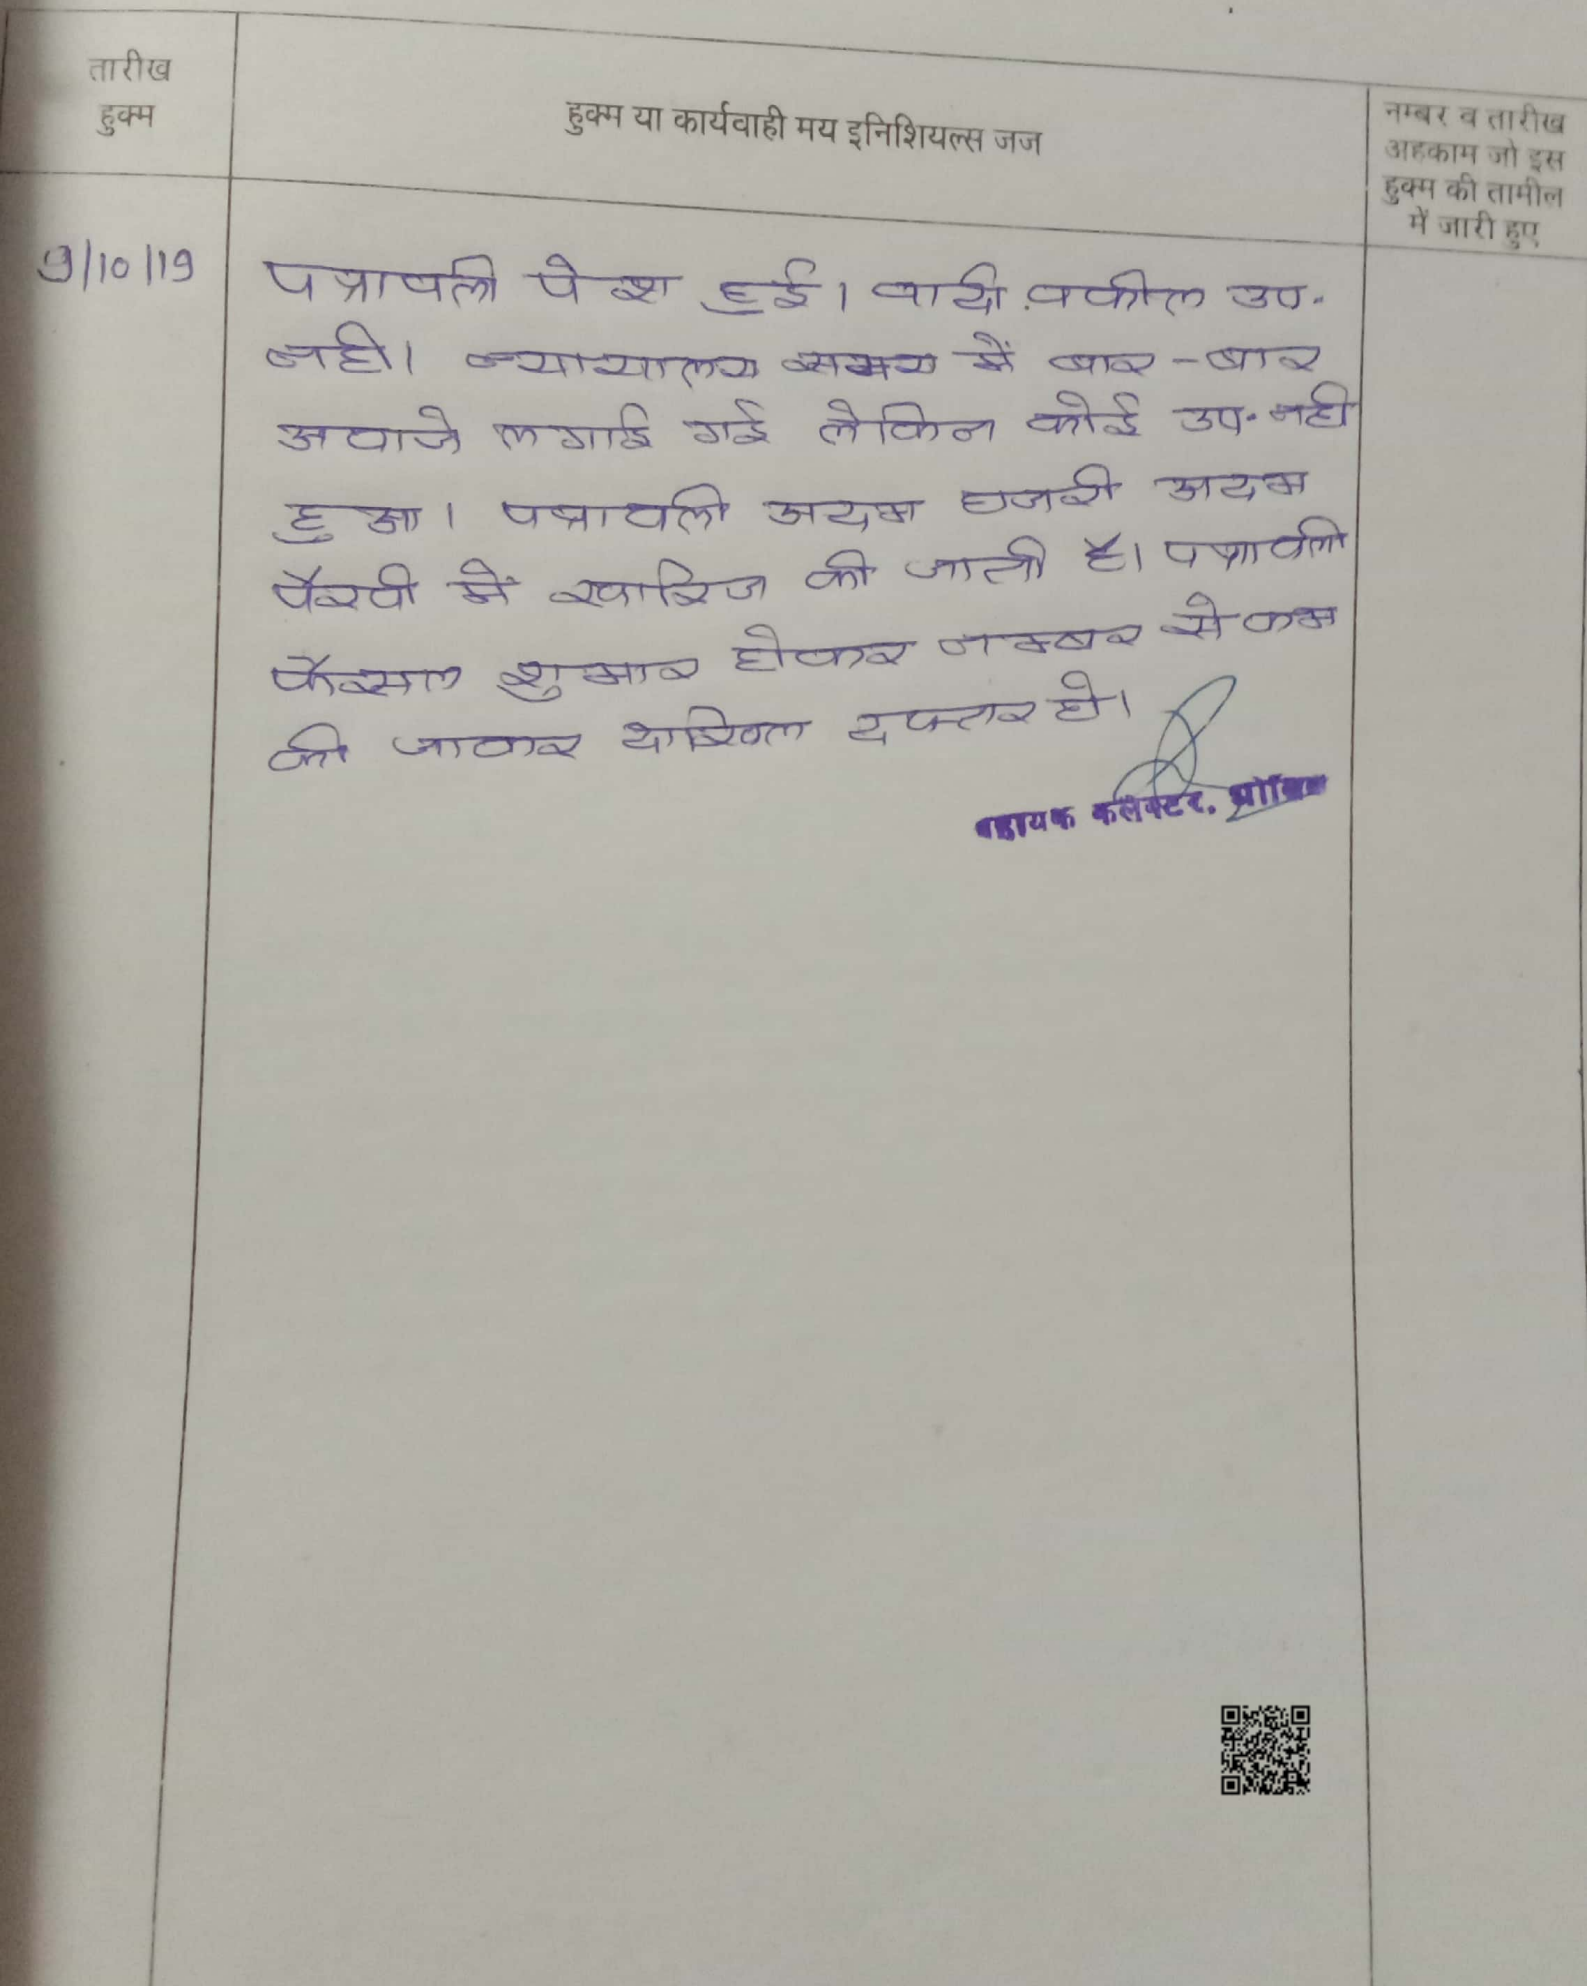 तारीख
हुक्म
हुक्म या कार्यवाही मय इनिशियल्स जज
नम्बर व तारीख
अहकाम जो इस
हुक्म की तामील
में जारी हुए
9/10/19
पत्रावली पेश हुई। वादी वकील उप.
नही। न्यायालय समय में बार-बार
अवाजे लगाई गई लेकिन कोई उप. नही
हुआ। पत्रावली अदम हाजरी अदम
पैरवी में खारिज की जाती है। पत्रावली
फैसल शुमार होकर नम्बर से कम
की जाकर दाखिल दफ्तर हो।
सहायक कलेक्टर,